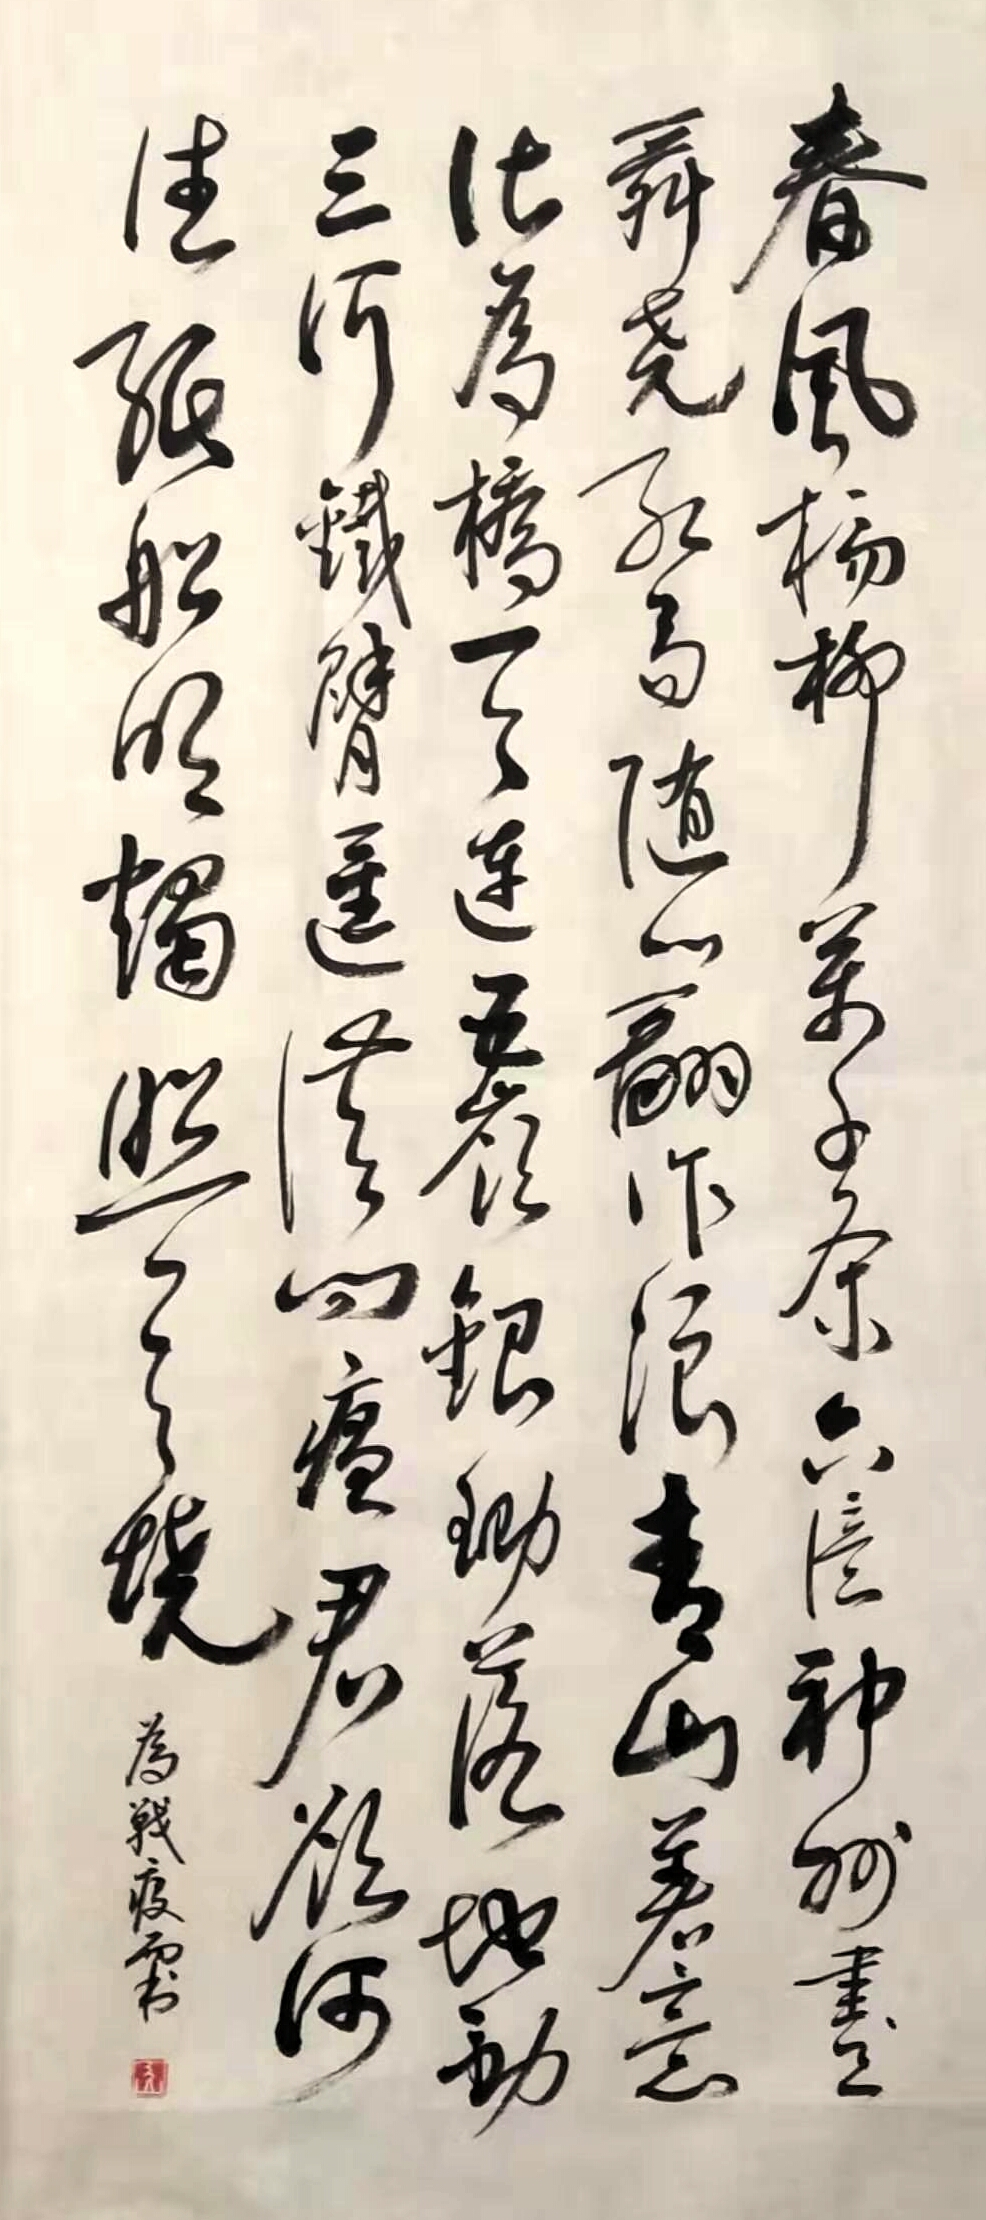 春風楊柳萬千条六億神州盡
舜尧紅雨随心翻作浪青山着意
化為橋天連五嶺銀鋤落地動
三河鐵臂遥借問瘟君欲何
往紙船明燭照天燒
為戰疫而书